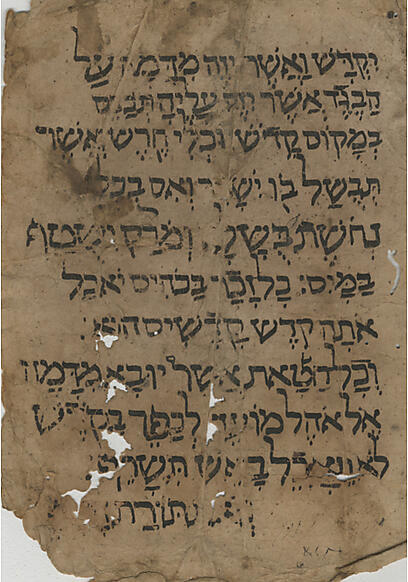 יִקְדָּשׁ וַאֲשֶׁר יִזֶּה מִדָּמָהּ עַל
הַבֶּגֶד אֲשֶׁר יִזֶּה עָלֶיהָ תְּכַבֵּס
בְּמָקוֹם קָדֹשׁ וּכְלִי חֶרֶשׂ אֲשֶׁר
תְּבֻשַּׁל בּוֹ יִשָּׁבֵר וְאִם בִּכְלִי
נְחֹשֶׁת בֻּשָּׁלָה וּמֹרַק וְשֻׁטַּף
בַּמָּיִם׃ כָּל זָכָר בַּכֹּהֲנִים יֹאכַל
אֹתָהּ קֹדֶשׁ קָדָשִׁים הִוא׃
וְכָל חַטָּאת אֲשֶׁר יוּבָא מִדָּמָהּ
אֶל אֹהֶל מוֹעֵד לְכַפֵּר בַּקֹּדֶשׁ
לֹא תֵאָכֵל בָּאֵשׁ תִּשָּׂרֵף׃
תּוֹרַת